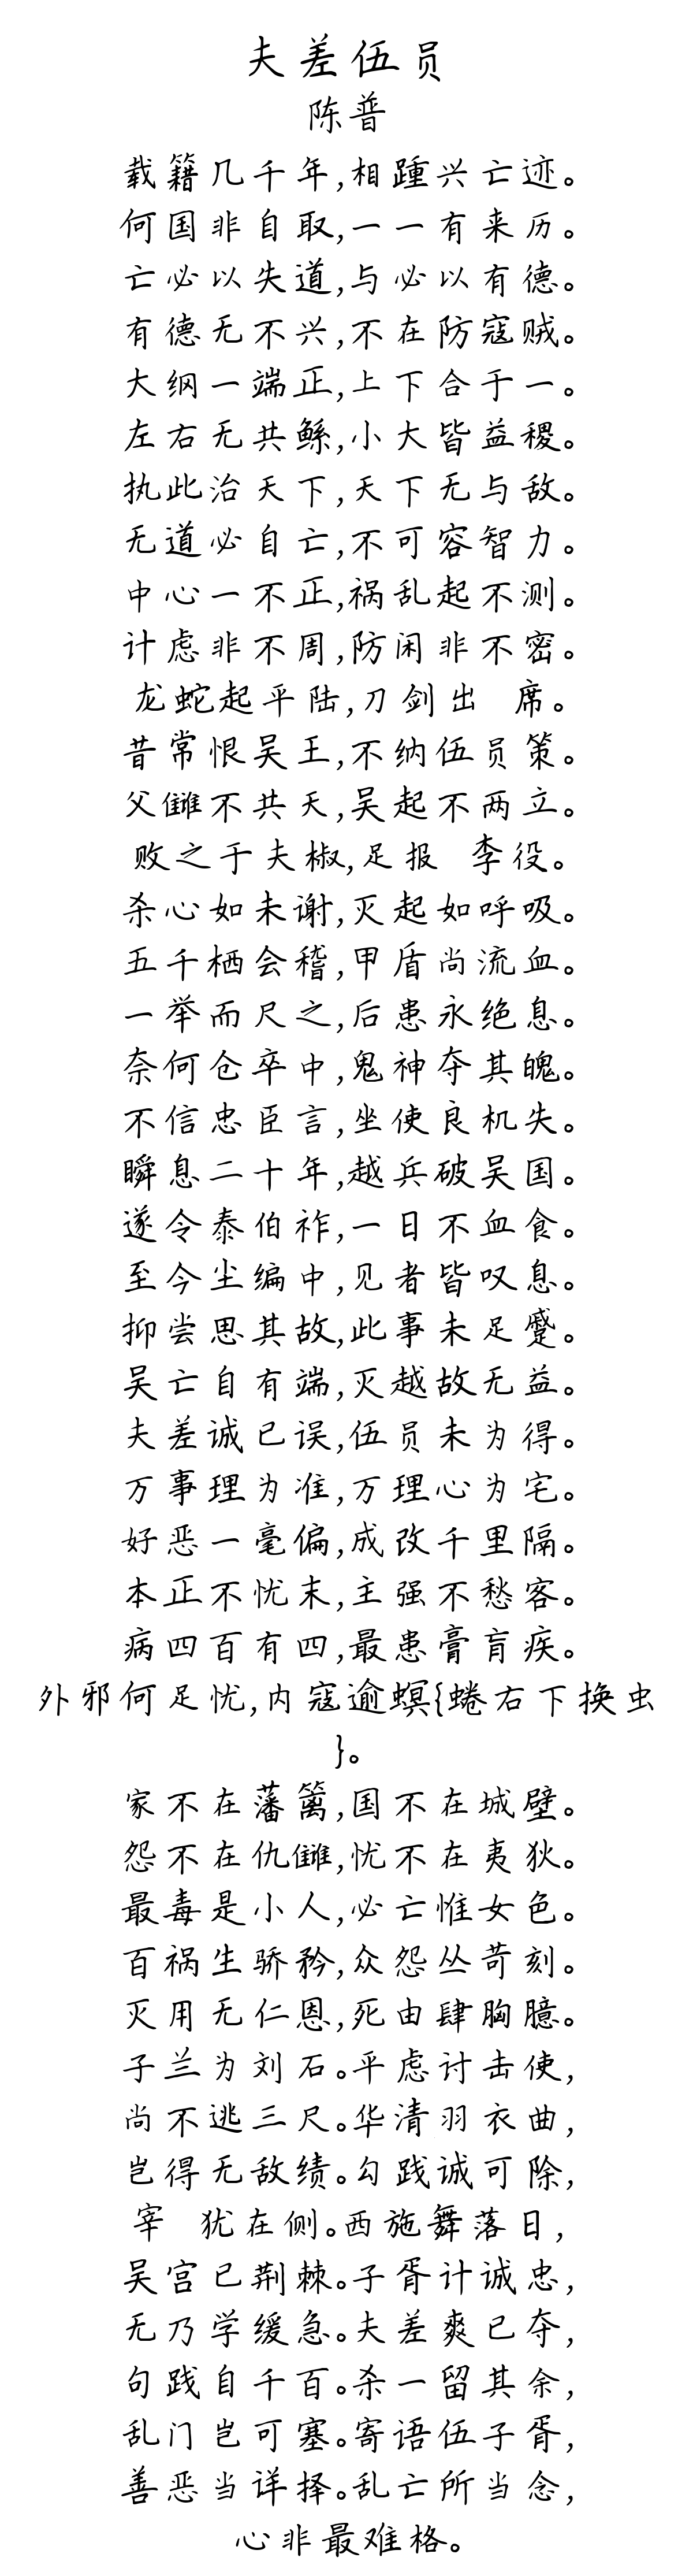 夫差伍员
陈普
载籍几千年,相踵兴亡迹。
何国非自取,一一有来历。
亡必以失道,与必以有德。
有德无不兴,不在防寇贼。
大纲一端正,上下合于一。
左右无共鲧,小大皆益稷。
执此治天下,天下无与敌。
无道必自亡,不可容智力。
中心一不正,祸乱起不测。
计虑非不周,防闲非不密。
龙蛇起平陆,刀剑出 席。
昔常恨吴王,不纳伍员策。
父雠不共天,吴起不两立。
败之于夫椒,足报 李役。
杀心如未谢,灭起如呼吸。
五千栖会稽,甲盾尚流血。
一举而尺之,后患永绝息。
奈何仓卒中,鬼神夺其魄。
不信忠臣言,坐使良机失。
瞬息二十年,越兵破吴国。
遂令泰伯祚,一日不血食。
至今尘编中,见者皆叹息。
抑尝思其故,此事未足蹙。
吴亡自有端,灭越故无益。
夫差诚已误,伍员未为得。
万事理为准,万理心为宅。
好恶一毫偏,成改千里隔。
本正不忧末,主强不愁客。
病四百有四,最患膏肓疾。
外邪何足忧,内寇逾螟{蜷右下换虫
}。
家不在藩篱,国不在城壁。
怨不在仇雠,忧不在夷狄。
最毒是小人,必亡惟女色。
百祸生骄矜,众怨丛苛刻。
灭用无仁恩,死由肆胸臆。
子兰为刘石。平虑讨击使,
尚不逃三尺。华清羽衣曲,
岂得无敌绩。勾践诚可除,
宰 犹在侧。西施舞落日,
吴宫已荆棘。子胥计诚忠,
无乃学缓急。夫差爽已夺,
句践自千百。杀一留其余,
乱门岂可塞。寄语伍子胥,
善恶当详择。乱亡所当念,
心非最难格。